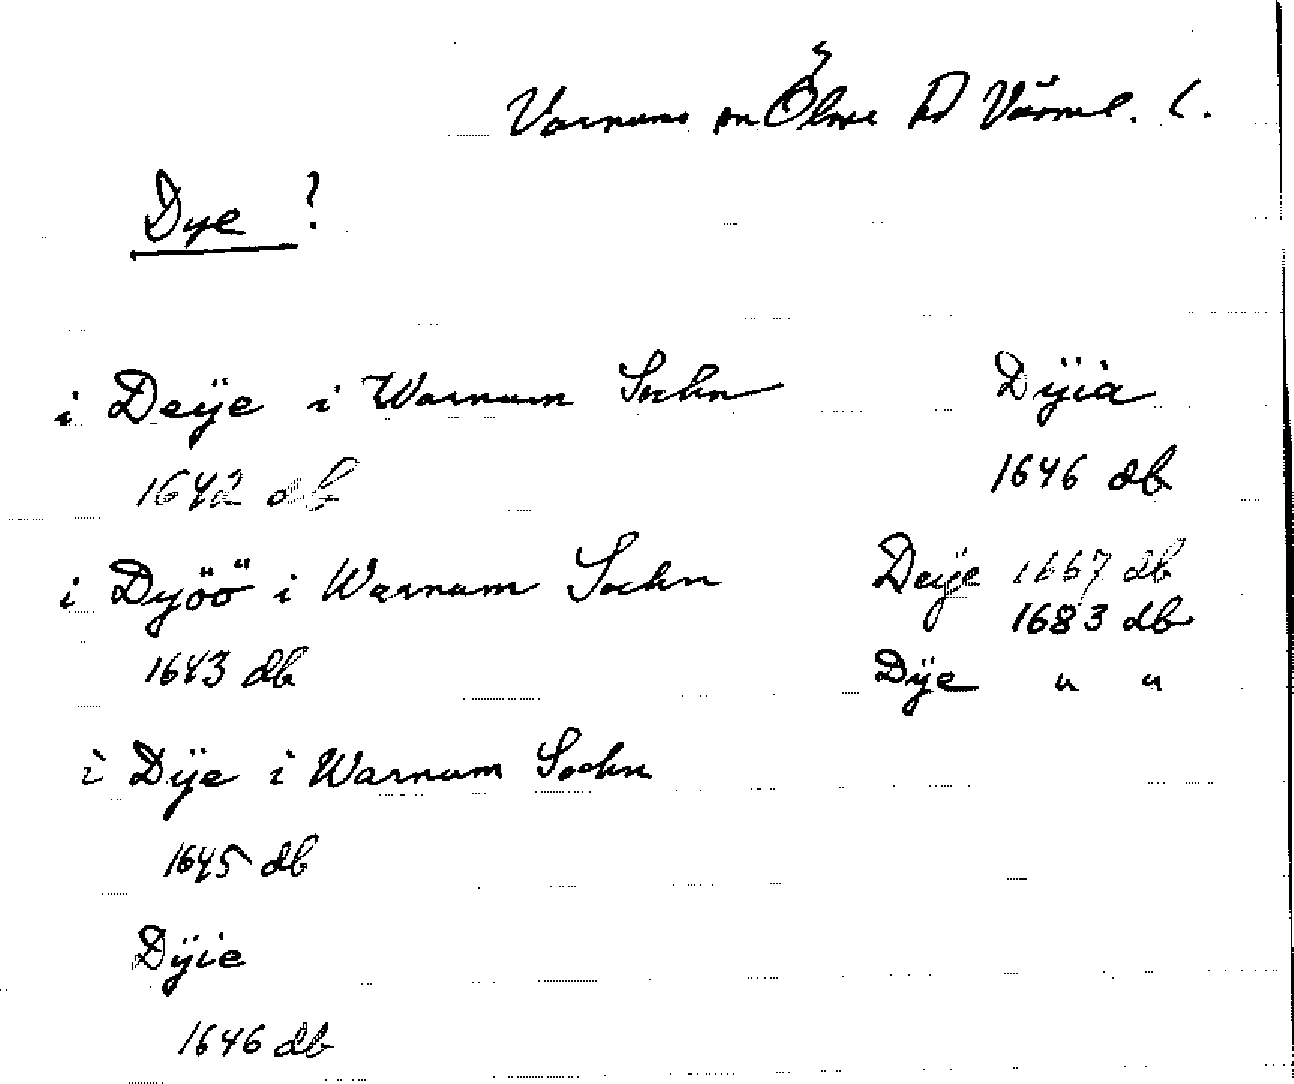 Varnums sn Ölme hd Värml. l.
Dye ?
i Deÿe i Warnum Sochn
1642 db
i Dyöö i Warnum Sochn
1643 db
i Dÿe i Warnum Sochn
1645 db
Dÿie
1646 db
Dÿia
1646 db
Deÿe 1667 db
1683 db
Dÿe " "